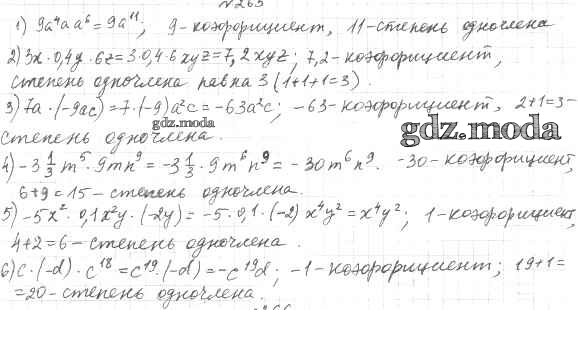 №265
1) 9a⁴aa⁶=9a¹¹; 9-коэффициент, 11-степень одночлена
2) 3x·0,4y·6z=3·0,4·6xyz=7,2xyz; 7,2-коэффициент,
степень одночлена равна 3 (1+1+1=3).
3) 7a·(-9ac)=7·(-9)a²c=-63a²c; -63-коэффициент, 2+1=3-
степень одночлена.
gdz.moda
gdz.moda
4) -3 1/3 m⁵·9mn⁹=-3 1/3·9m⁶n⁹=-30m⁶n⁹. -30-коэффициент,
6+9=15-степень одночлена.
5) -5x²·0,1x²y·(-2y)=-5·0,1·(-2)x⁴y²=x⁴y²; 1-коэффициент,
4+2=6-степень одночлена.
6) c·(-d)·c¹⁸=c¹⁹·(-d)=-c¹⁹d; -1-коэффициент; 19+1=
=20-степень одночлена.